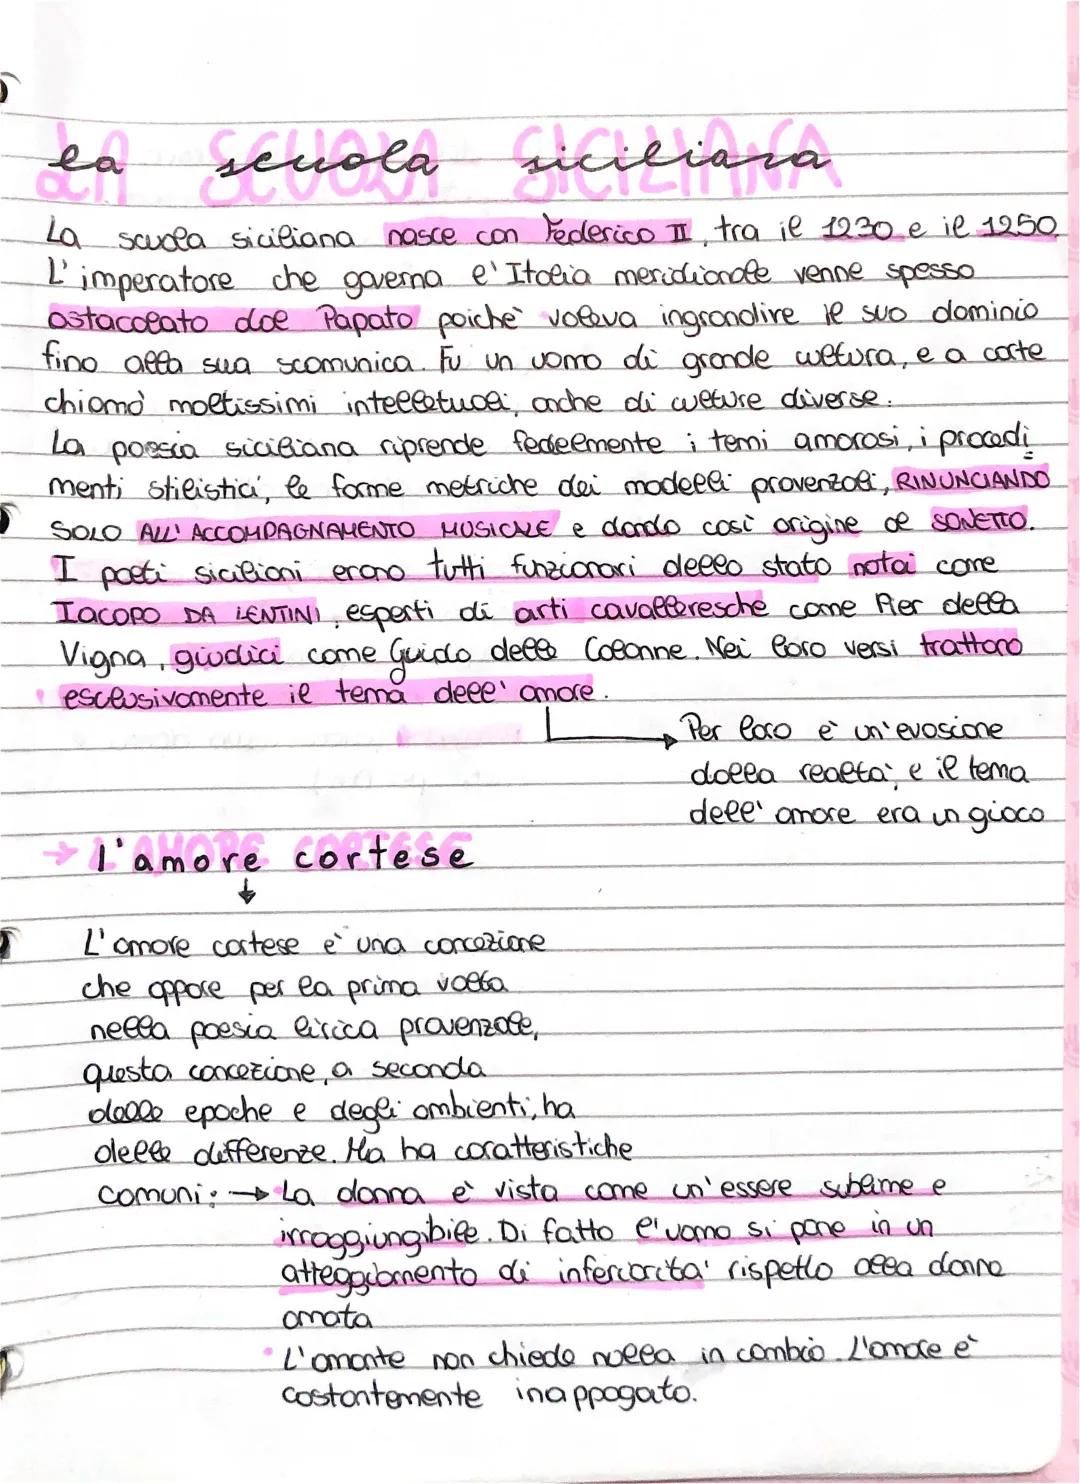 la scuola siciliana
La scuola siciliana nasce con Federico II, tra il 1230 e il 1250
L'imperatore che governa l'Italia meridionale venne spesso
ostacolato dal Papato poichè voleva ingrandire il suo dominio
fino alla sua scomunica. Fu un uomo di grande cultura, e a corte
chiamò moltissimi intellettuali, anche di culture diverse.
La poesia siciliana riprende fedelmente i temi amorosi, i procedi
menti stilistici, le forme metriche dei modelli provenzali, RINUNCIANDO
SOLO ALL'ACCOMPAGNAMENTO MUSICALE e dando così origine al SONETTO.
I poeti siciliani erano tutti funzionari dello stato notai come
IACOPO DA LENTINI, esperti di arti cavalleresche come Pier della
Vigna, giudici come Guido delle Colonne. Nei loro versi trattano
esclusivamente il tema dell'amore.
Per loro è un'evasione
dalla realtà, e il tema
dell'amore era un gioco
→ l'amore cortese
L'amore cortese è una concezione
che appare per la prima volta
nella poesia lirica provenzale,
questa concezione, a seconda
delle epoche e degli ambienti, ha
delle differenze. Ma ha caratteristiche
comuni: → • La donna è vista come un'essere sublime e
irraggiungibile. Di fatto l'uomo si pone in un
atteggiamento di inferiorità rispetto alla donna
amata
• L'amante non chiede nulla in cambio. L'amore è
costantemente inappagato.